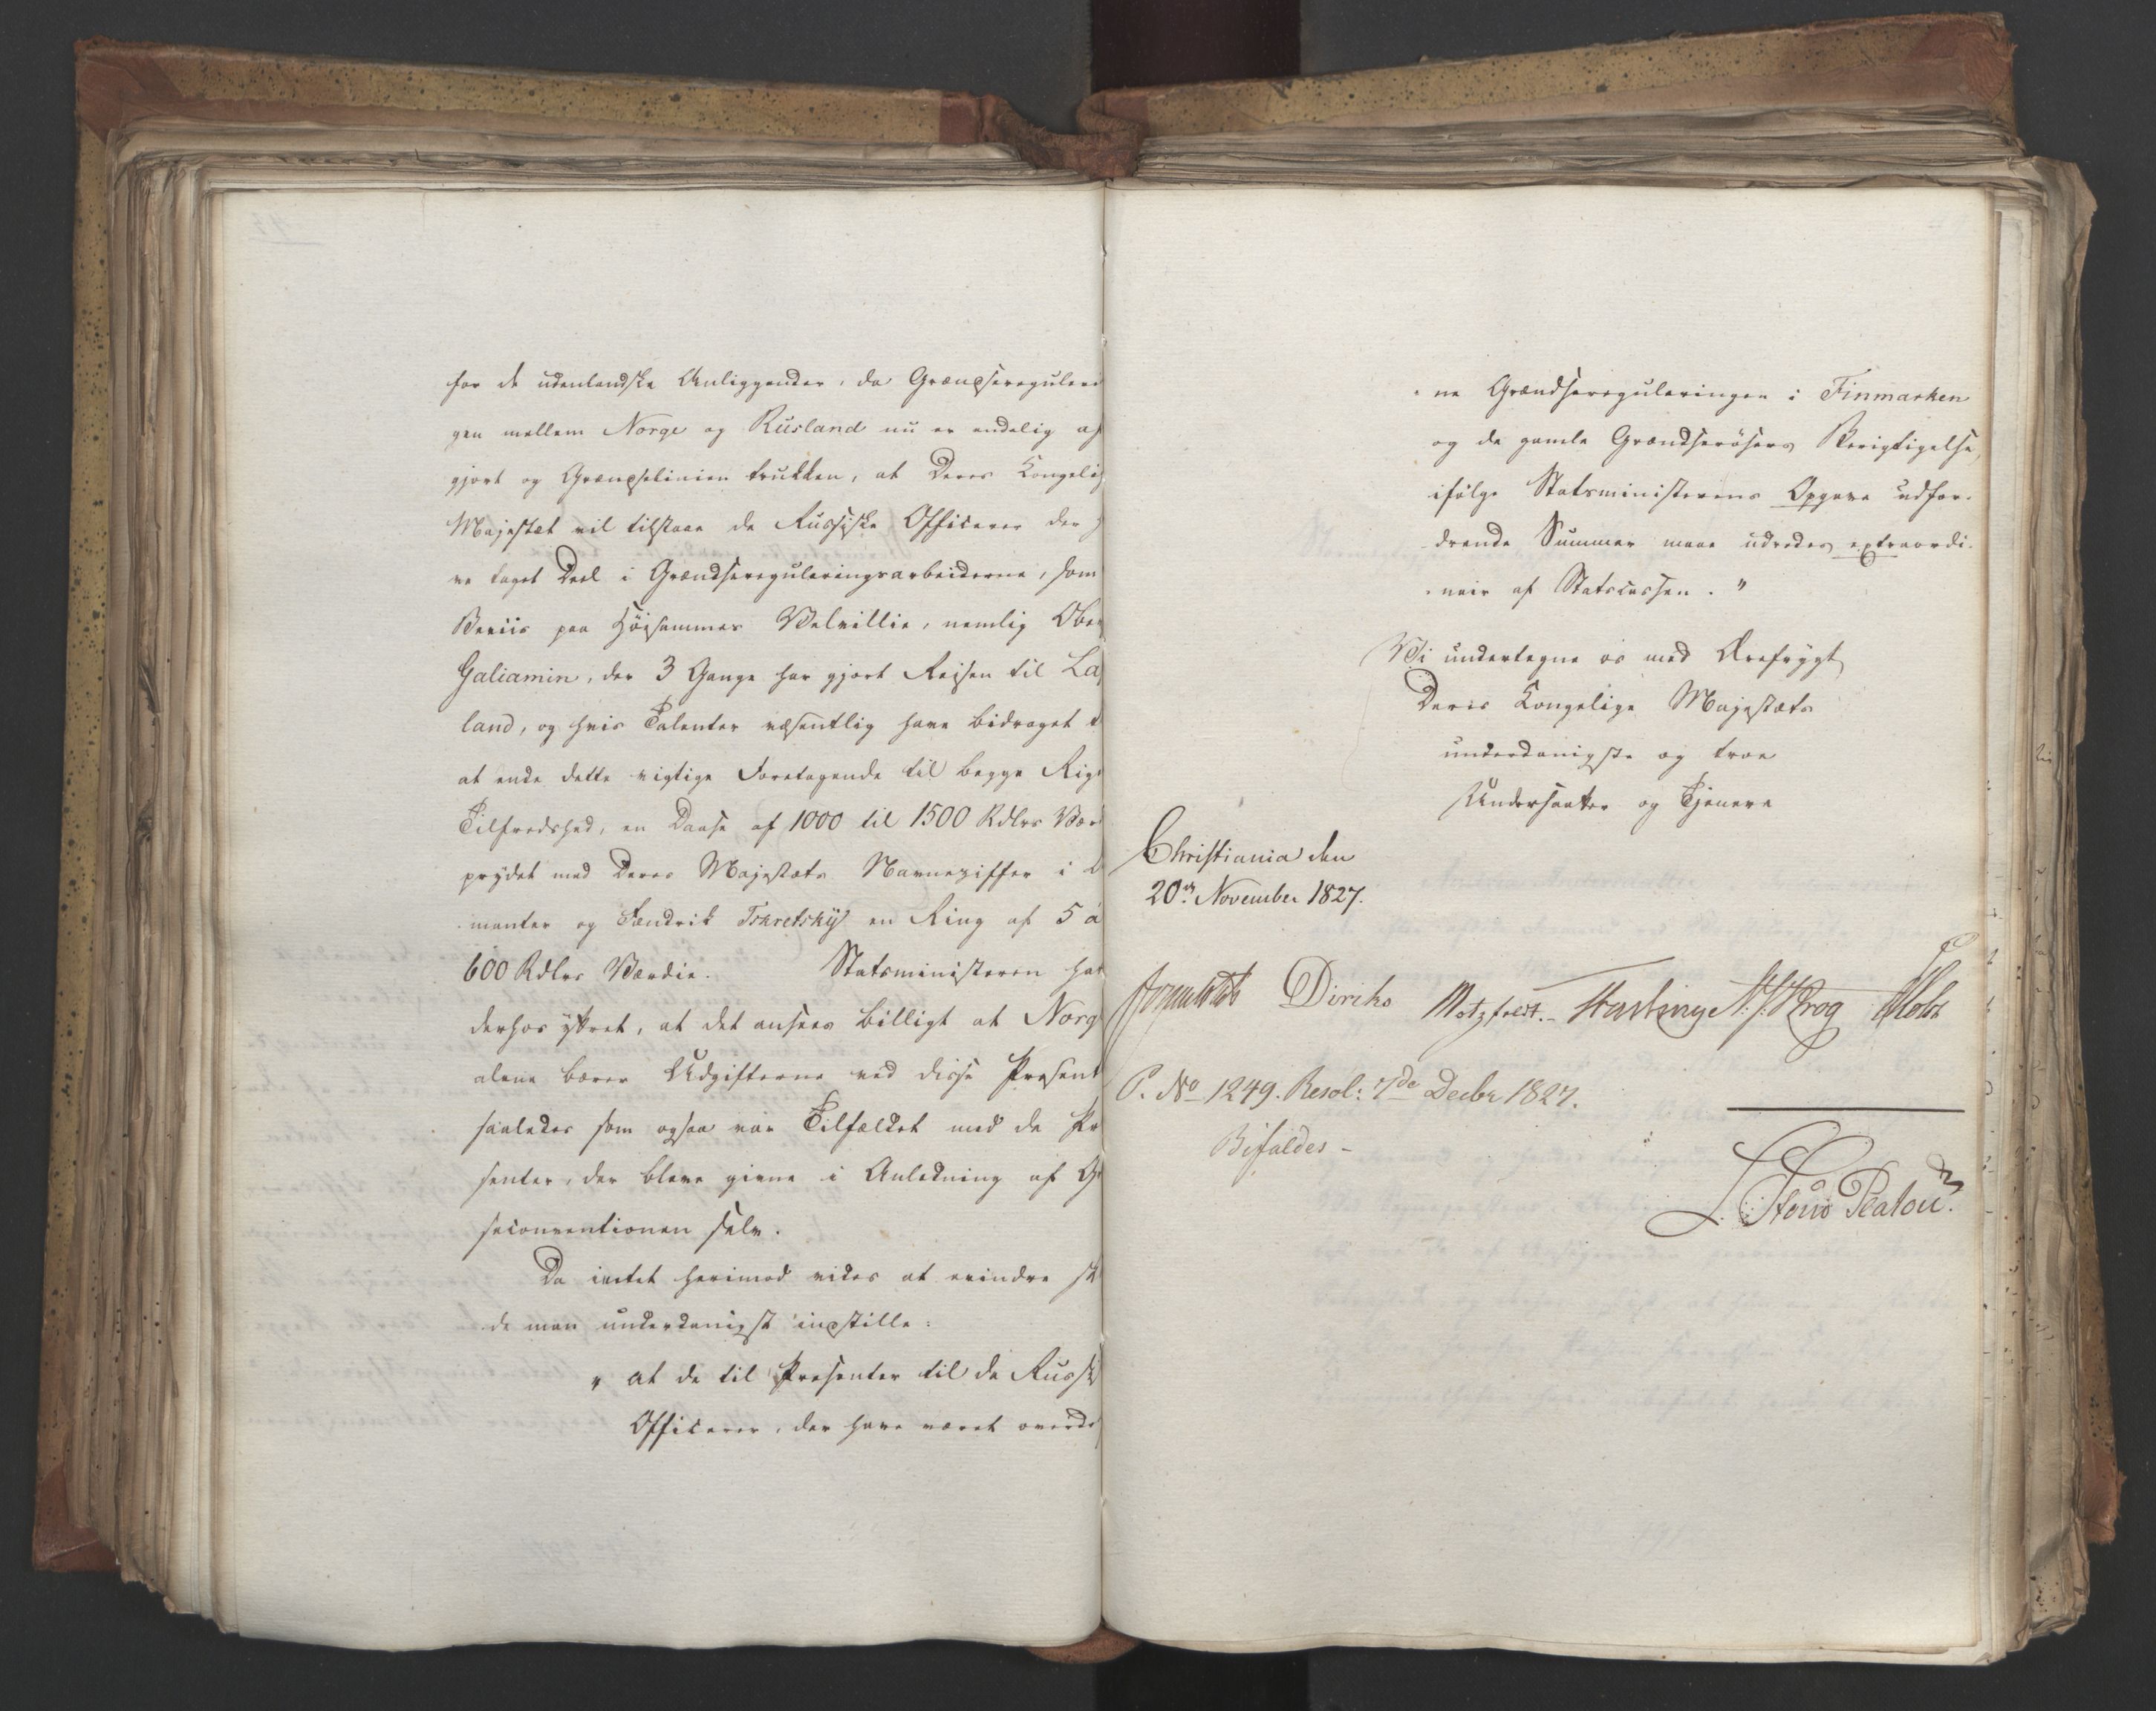 for de udenlandske Anliggender, da Grændseregulerin
gen mellem Norge og Rusland nu er endelig af
gjort og Grændselinien trukken, at Deres Kongelig
Majestæt vil tilstaae de Russiske Officerer der h
ve taget Deel i Grændsereguleringsarbeiderne, som
Beviis paa Høisammes Velvillie, nemlig Ober
Galiamin, der 3 Gange har gjort Reisen til Lap
land, og hvis Talenter væsentlig have bidraget t
at ende dette vigtige Foretagende til begge Rig
Tilfredshed, en Daase af 1000 til 1500 Rdlrs Værd
prydet med Deres Majestæts Navneziffer i D
manter og Fændrik Tskretskÿ en Ring af 5 a
600 Rdlrs Værdie. Statsministeren har
derhos yttret, at det ansees billigt at Norg
alene bærer Udgifterne ved disse Present
saaledes som ogsaa var Tilfældet med de Pr
senter, der bleve givne i Anledning af Gr
seconventionen selv.
Da intet herimod vides at erindre sk
de man underdanigst indstille:
" at de til Presenter til de Russi
Officerer, der have været overdr
ne Grændsereguleringen i Finmarken
og de gamle Grændserøsers Berigtigelse,
ifølge Statsministerens Opgave udfor-
drende Summer maae udredes extraordi-
nair af Statscassen. "
Vi undertegne os med Ærefrygt
Deres Kongelige Majestæts
underdanigste og troe
Undersaatter og Tjenere
Christiania den
20de November 1827.
Diriks Motzfeldt. N. J. Krog
P. No 1249. Resol: 7de Decbr 1827.
Bifaldes -
L. Stoud Platou